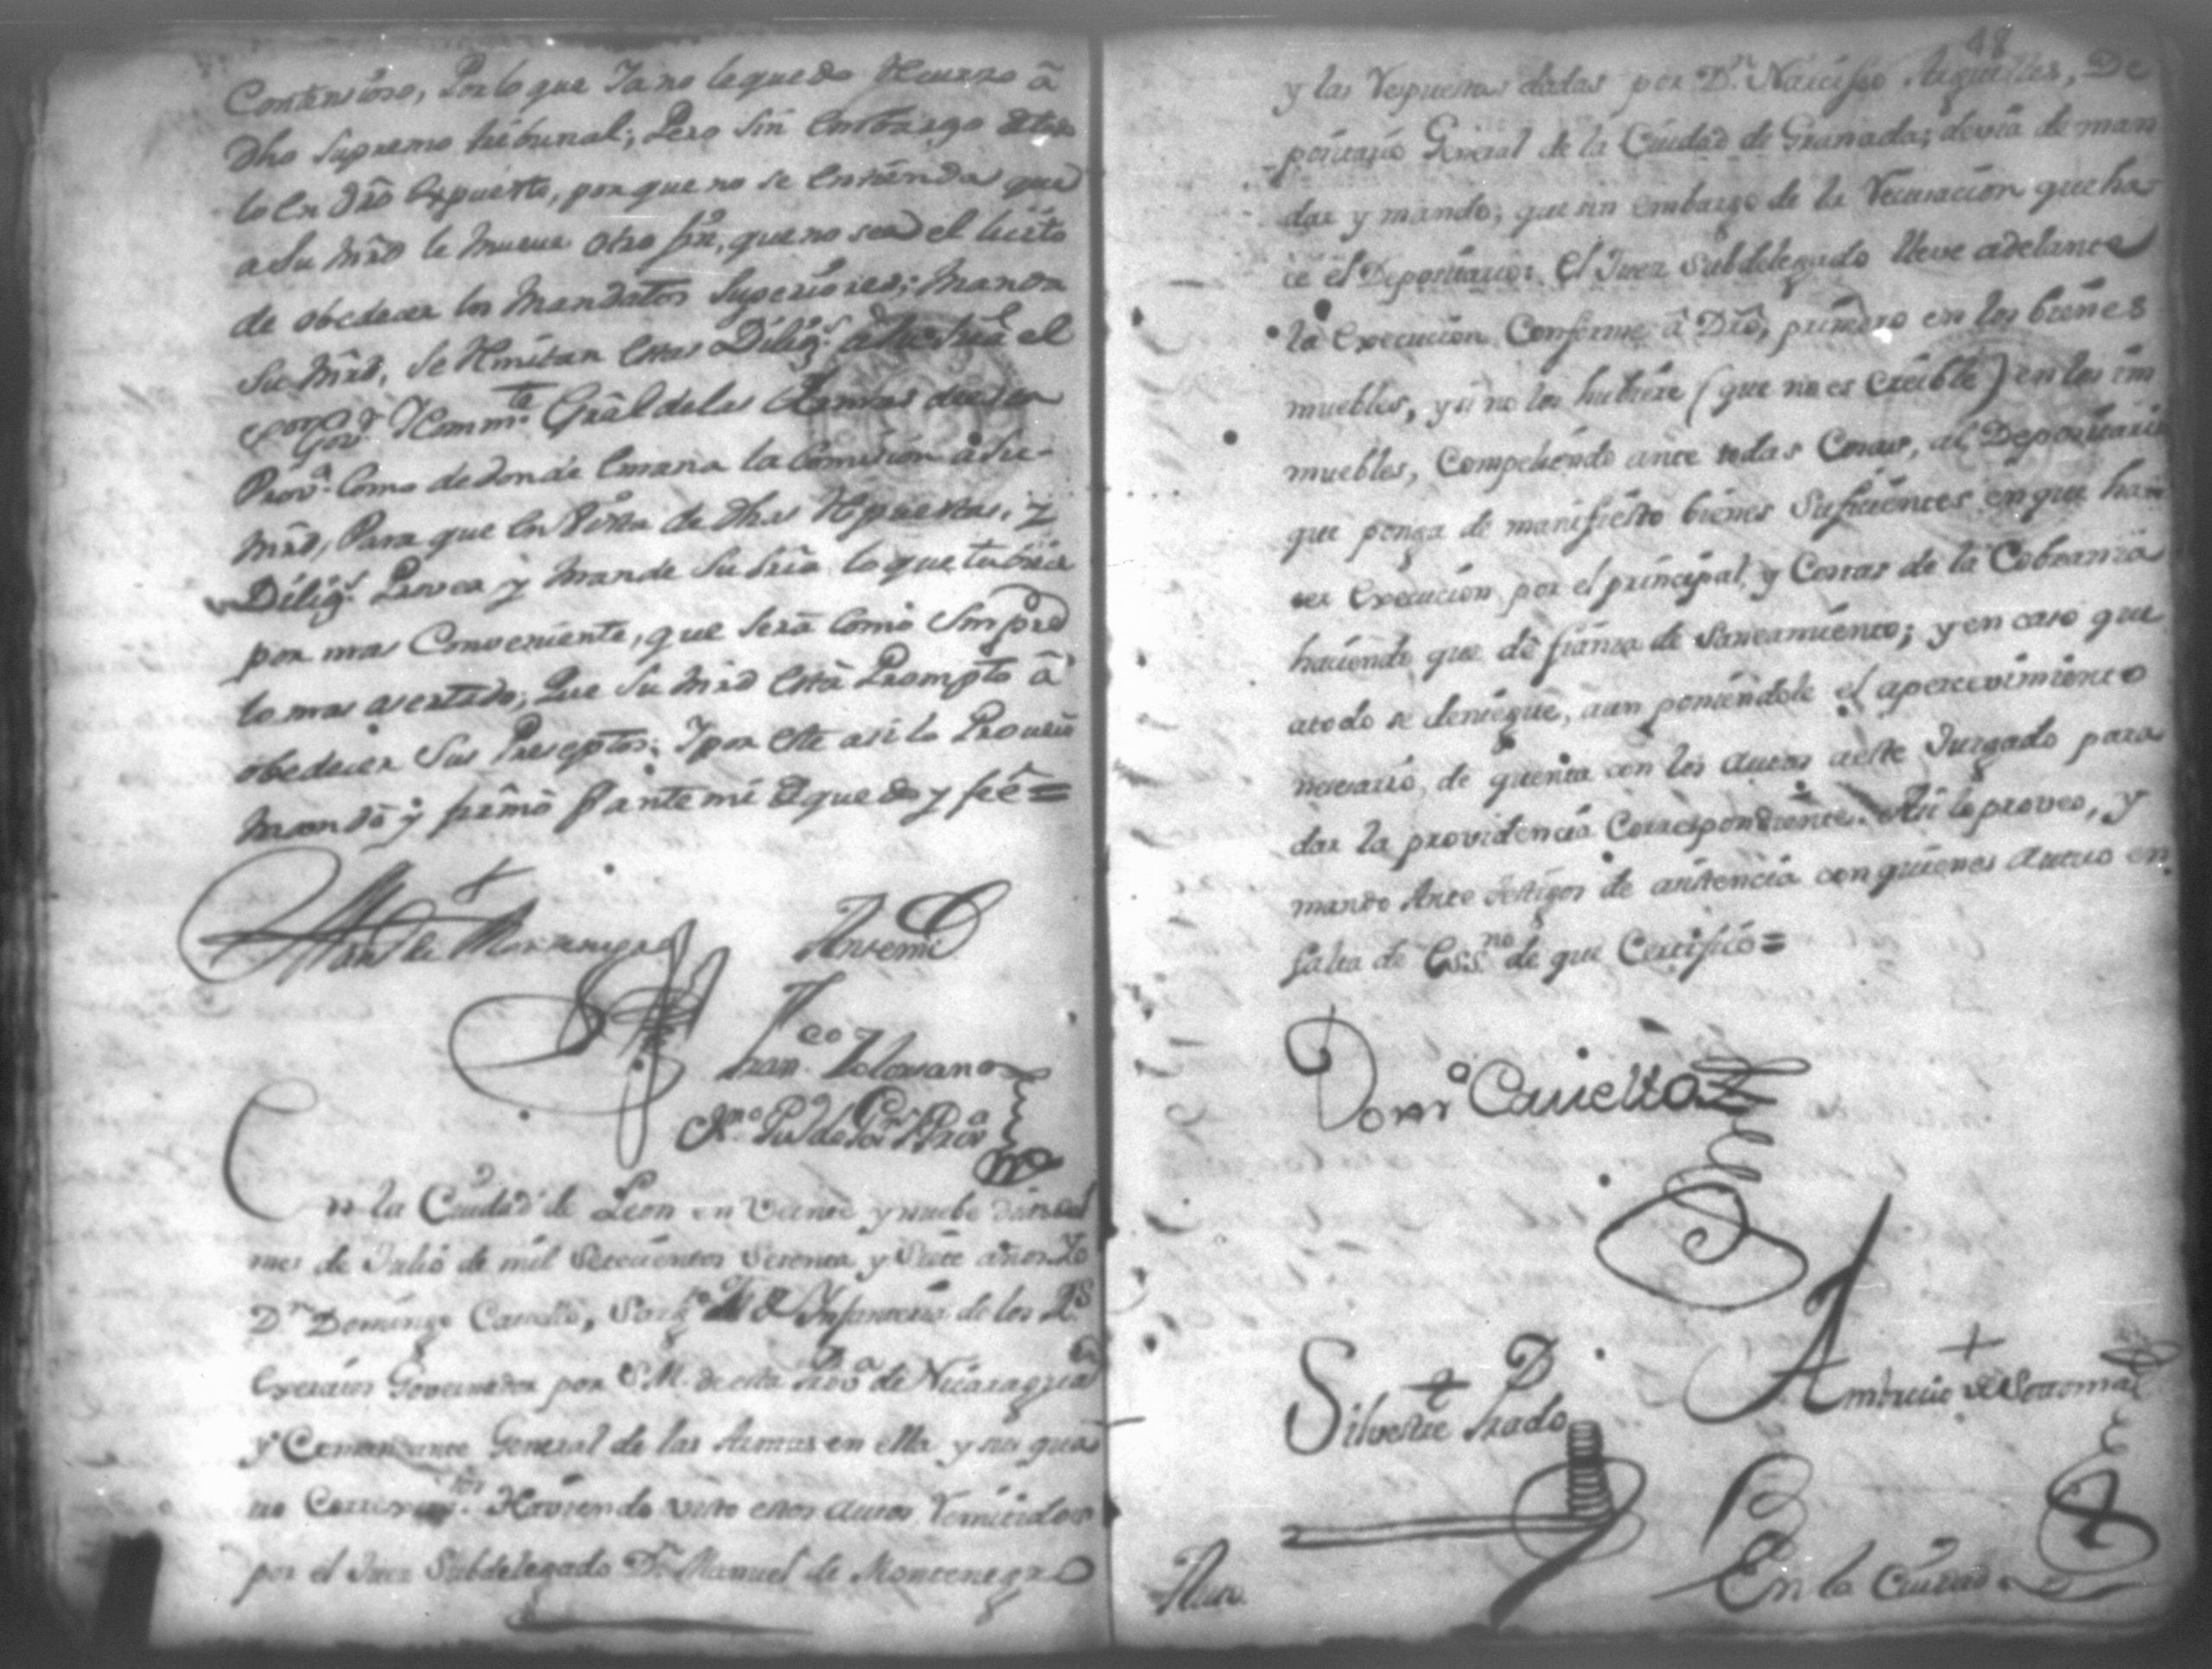 Contensioso, Por lo que Ya no le queda Recurso â
dho Supremo tribunal; Pero sin embargo de
lo en dro Expuesto, porque no se entienda que
a Su Mrd le mueve otro fin, que no sea el
de obedecer los Mandatos Superiores; Manda
Su Mrd, Se Remitan estas Dilig.s â Su Sria el
Gov.r Y Comm.te Grâl de las Armas de esta
Prov.a Como de donde emana la Comision â Su
Mrd, Para que en Vista de dhas Repuestas, y
Dilig.s Provea y Mande Su Sria lo que tubiere
por mas Conveniente, que Serâ Como Smpre
lo mas asertado, Que Su Mrd està Prompto â
obedecer Sus Preseptos; Y por este asi lo Proveiô
Mandô y firmô Pr ante mi de que doy feê=
Man.l de Montenegro
Antemi
Fran.co
En la Ciudad de Leon en Veinte y nuebe dias del
mes de Julio de mil Setecientos Setenta y Siete años Yo
D.n Domingo Cavello, Sarg.to M.r de Infanteria de los R.s
Exercitos Governador por S.M. de esta Prov.a de Nicaragua
y Comandante General de las Armas en ella
Haviendo visto estos autos Remitidos
por el Juez Subdelegado D.n Manuel de Montenegro
48
y las Respuestas dadas por D.n Narcisso Arguelles, De
positario General de la Ciudad de Granada; devia de man
dar y mando, que sin embargo de la Recusacion que ha
ce el Depositario: el Juez Subdelegado lleve adelante
la execucion Conforme â Dro, primero en los bienes
muebles, y si no los hubiere (que no es creible) en los im
muebles, Compeliendo ante todas Cosas, al Depositario
que ponga de manifiesto bienes Suficientes en que ha
ser execucion por el principal, y Costas de la Cobranza
haciendo que dé fianza de Saneamiento; y en caso que
atodo se deniegue, aun poniendole el apercevimiento
necesario, de quenta con los autos aeste Jusgado para
dar la providencia Correspondiente. Asi lo proveo, y
mando Ante testigos de asistencia con quienes actuo en
falta de Ess.no de que Certifico=
Dom.o Cavello
Silvestre Prado
Ambrocio de Sotomai
En la Ciudad